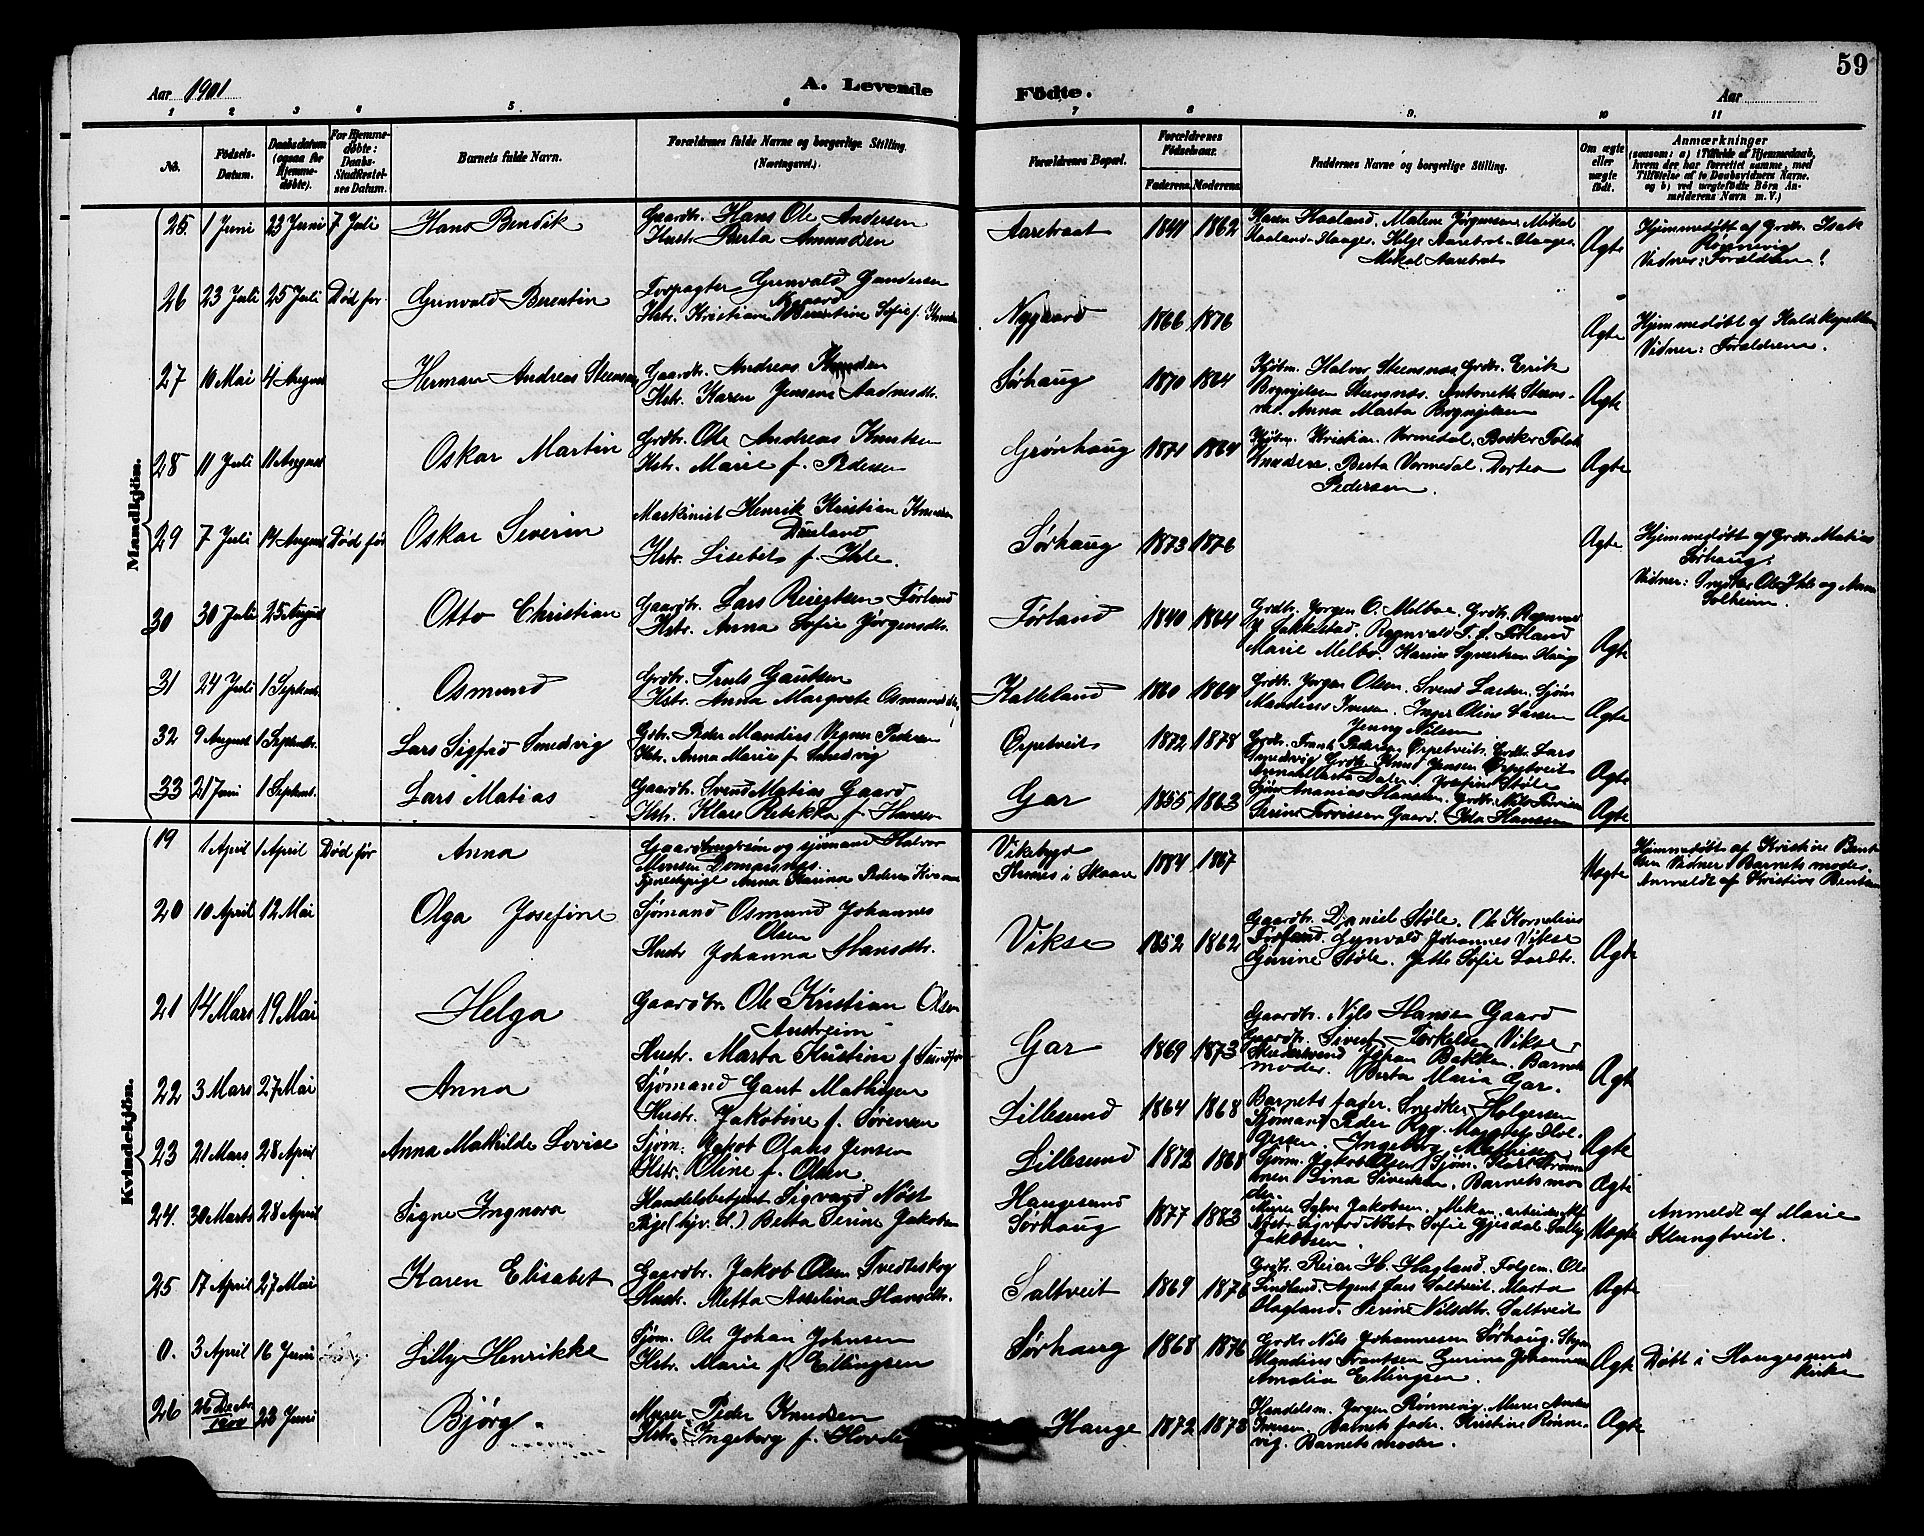 59
Aar 1901
A. Levende
Födte.
Aar
1 2 3 4 5. 6 7 8 9. 10 11
No.
Födsels-Datum.
Daabsdatum (ogsaa for Hjemme-døbte).
For Hjemme-døbte: Daabs-Stadfæstel-nes Datum.
Barnets fulde Navn.
Forældrenes fulde Navne og borgerlige Stilling. (Næringsvei.)
Forældrenes Bopæl.
Forældrenes Födselsaar.
Faderens. Moderens.
Faddernes Navne og borgerlige Stilling.
Om ægte eller uægte født.
Anmærkninger
(saasom: a) i Tilfælde af Hjemmedaab, hvem der har forrettet samme, med Tilföielse af to Daabsvidners Navne, og b) ved uægtefödte Börn Anmelderens Navn m. V.)
Mandkjön.
25. 1 Juni 23 Juni 7 Juli Hans Bendik Gaardbr. Hans Ole Andersen Aarebraat 1841 1862 Karen Haaland. Malene Jørgensen. Mikal
Hustr. Berta Amundsen Haaland-Haages. Helge Aarebrot-Haages. Mikal Aarebrot Ægte
Hjemmedøbt af Grdr. Isak Rønnevig
Vidner: Forældrene!
26 23 Juli 25 Juli Død før Grunvald Berentin Forpagter Grunvald Gundersen Nygaard
Hstr. Kristiane Berentine Sofie f. Nygaard 1866 1876 Ægte Hjemmedøbt af
Vidner: Forældrene.
27 10 Mai 4 August Herman Andreas Steensnæs Gaardbr. Andreas Knudsen
Hstr. Karen Jensine Andnesdtr. Sørhaug 1870 1864 Kjøbm. Halvor Steensnæs, Grdr. Erik
Brynjelsen Steensnæs. Antonette Steens-
næs. Anna Marta Brynjelsen Ægte
28 11 Juli 11 August Oskar Martin Grdbr. Ole Andreas Knutsen
Hstr. Marie f. Pedersen Grønhaug 1871 1864 Kjøbm. Kristian Vormedal.
Knudsen. Berta Vormedal. Dortea
Pedersen. Ægte
29 7 Juli 14 August Død før Oskar Severin Maskinist Henrik Kristian Knudsen
Hstr. Lisebet f. Ihle. Sørhaug 1873 1876 Ægte Hjemmedøbt af Grdr. Matias
Sørhaug.
Vidner: Snedker Ole Ihle og Anna
Solheim.
30 30 Juli 25 August Otto Christian Gaardbr. Lars Førland
Hstr. Anna Sofie Jørgensdtr. Førland 1840 1864 Grdbr. Jorgen O. Melboe. Grdbr. Ragnvald
Ragnvald T. S. Førland
Marie Melbo. Karine Syvertsen Haug Ægte
31 24 Juli 1 Septemb. Osmund Grdbr. Truls Gautsen
Hstr. Anna Margrete Osmundsdtr. Kalleland 1860 1864 Grdbr. Jorgen Olsen. Svend Larsen. Sjøm
Mandius Iversen. Inger Oline Larsen
Jenny Nilsen Ægte
32 9 August 1 Septembr. Lars Sigfrid Smedvig Grdr. Peder Mandius Pedersen
Hstr. Anna Marie f. Smedvig Ørpetveit 1872 1878 Grdbr. Frank Pedersen Ørpetveit. Grdbr. Lars
Smedvig Grdbr. Knut Jensen Ørpetveit
Anna Marta Dalen. Josefine Støle Ægte
33 21 Juni 1 Septemb. Lars Matias Gaardbr. Svend Matias Gaard
Hstr. Klare Rebekka f. Hansen Gar 1855 1863 Sjøm Ananias Hansen. Grdbr. Nils
Gaard. Ida Hanssen Ægte
Kvindekjön.
19 1 April 1 April Død før Anna og sjømand Halvor
Monsen
Tjenestepige Anna Karina Pedersen Vikebygd
i Skaare 1884 1867 Uægte Hjemmedøbt af Kristine Bent-
sen Vidner Barnets moder.
Anmeldt af Kristine Bentsen
20 10 April 12 Mai Olga Josefine Sjømand Osmund Johannes
Olsen
Hustr Johanna Hansdtr. Vikse 1852 1862 Gaardbr. Daniel Støle. Ole Kornelius
Gunvald Johannes Vikse
Gurine Støle. Jette Sofie Larsdtr. Ægte
21 14 Mars 19 Mai Helga Gaardbr. Ole Kristian Olsen
Austreim
Hustr. Marta Kristine f. Gar 1869 1873 Gaardbr. Nils Hansen Gaard
Gaardbr. Sivert Torkelsen Vikse
Johan Bakken. Barnets
moder. Berta Maria Gar. Ægte
22 3 Mars 27 Mai Anna Sjømand Gaut Mathisen
Hustr. Jakobine f. Sørensen Lillesund 1864 1868 Barnets fader. Snedker Holgersen
Sjømand Peder Ryg. Margrete Hol-
gersen. Ingeborg Mathisen Ægte
23 21 Mars 28 April Anna Mathilde Lovise Sjøm. Jakob Olaus Jensen
Hstr. Oline f. Olsen Lillesund 1872 1868 Sjøm. Jakob Olsen, Sjøm. Karl
Lina Sivertsen. Barnets mo-
der. Ægte
24. 30 Marts 28 April Signe Ingnora Handelsbetjent Sigvard Nøst
Pige (hjv. d.) Berta Serine Jakobsen Haugesund
Sørhaug 1877 1883 Jakobsen. Mekan. arbeider
Nøst. Sigvard Nøst. Sofie Gjesdal.
Jakobsen. Uægte Anmeldt af Marie
Klungtveit.
25 17 April 27 Mai Karen Elisabet Gaardbr. Jakob Olsen Tvedteskog
Hustr. Metta Asselina Hansdtr. Saltveit 1869 1876 Grdbr. Reiar H. Hagland. Folgem. Ole
Lindland. Agent Lars Saltveit. Marta
Hagland. Serine Nilsdtr. Saltveit Ægte
0. 3 April 16 Juni Lilly Henrikke Sjøm. Ole Johan Johnsen
Hstr. Marie f. Ellingsen Sørhaug 1868 1876 Grdbr. Nils Johannesen Sørhaug.
Mandius Frantsen Gurine Johannesen
Amalia Ellingsen. Ægte Døbt i Haugesunds
kirke
26 26 Decbr. 1900 23 Juni Bjørg Murer Peder Knudsen
Hstr. Ingeborg f. Hovde Hauge 1872 1873 Handelsm. Jorgen Rønnevig. Murer Anders
Iversen. Barnets fader. Kristine Rønne-
vig. Barnets moder. Ægte